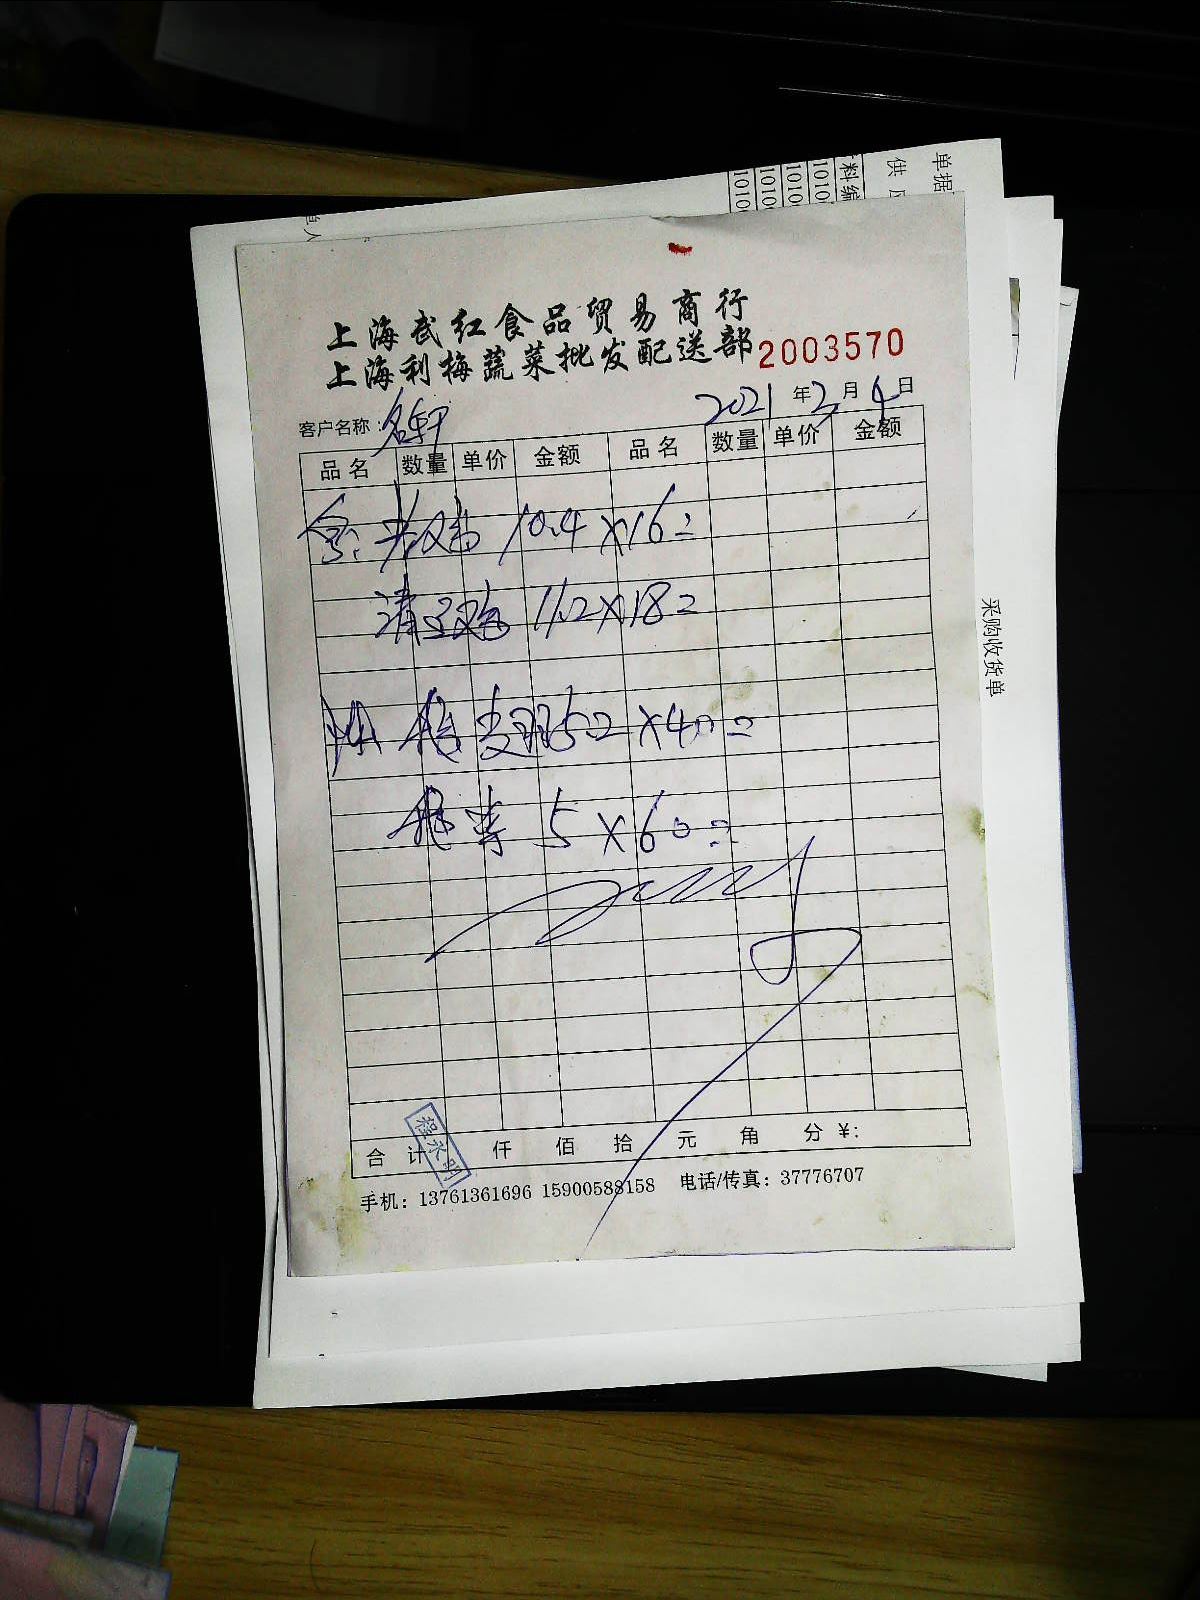 单据
供
料编
1010
1010
1010
1010
上海武红食品贸易商行
上海利梅蔬菜批发配送部 2003570
客户名称：名轩 2021年2月4日
品名 数量 单价 金额 品名 数量 单价 金额
光鸡 10.4×16=
清远鸡 11.2×18=
50= ×40=
5×60=
采购收货单
合计 仟 佰 拾 元 角 分 ¥:
程永明
手机：13761361696 15900588158 电话/传真：37776707